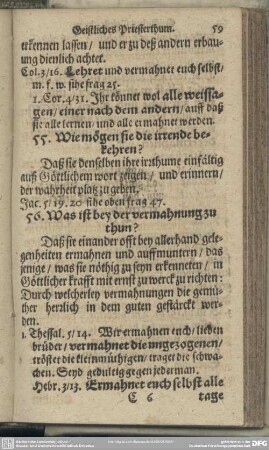 Geistliches Priesterthum. 59
erkennen lassen / und er zu deß andern erbau-
ung dienlich achtet.
Col. 3/16. Lehret und vermahnet euch selbst/
m. f. w. sihe frag 25.
1. Cor. 4/31. Ihr könnet wol alle weissa-
gen / einer nach dem andern / auff daß
sie alle lernen und alle ermahnet werden.
55. Wie mögen sie die irrende be-
kehren?
Daß sie denselben ihre irrthume einfältig
auß Göttlichem wort zeigen / und erinnern/
der wahrheit platz zu geben.
Jac. 5/19. 20. sihe oben frag 47.
56. Was ist bey der vermahnung zu
thun?
Daß sie einander offt bey allerhand gele-
genheiten ermahnen und auffmuntern / das
jenige / was sie nöthig zu seyn erkenneten / in
Göttlicher krafft mit ernst zu werck zu richten:
Durch welcherley vermahnungen die gemü-
ther herrlich in dem guten gestärckt wer-
den.
1. Thessal. 5/14. Wir ermahnen euch / lieben
brüder / vermahnet die ungezogenen/
tröstet die kleinmüthigen / traget die schwa-
chen. Seyd gedultig gegen jederman.
Hebr. 3/13. Ermahnet euch selbst alle
C 6 tage
DFG